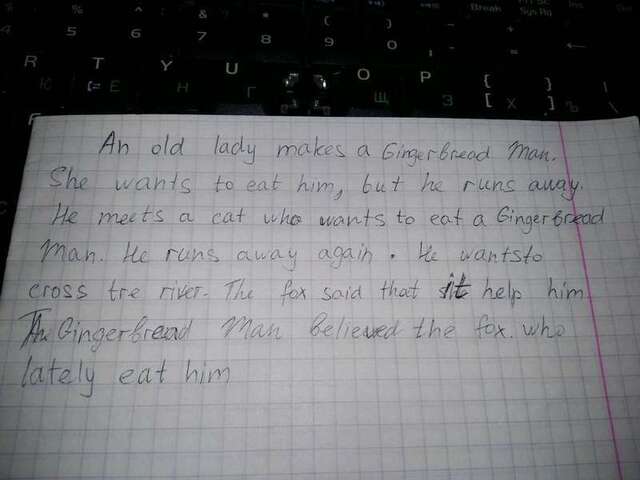 % ^ & * ( )
5 6 7 8 9 0
Break Sys Rq Ins
R T Y U O P { }
Е Н Г Щ З [ Х ] Ъ
An old lady makes a Gingerbread Man.
She wants to eat him, but he runs away.
He meets a cat who wants to eat a Gingerbread
Man. He runs away again. He wantsto
cross tre river. The fox said that it help him
The Gingerbread Man believed the fox. who
lately eat him